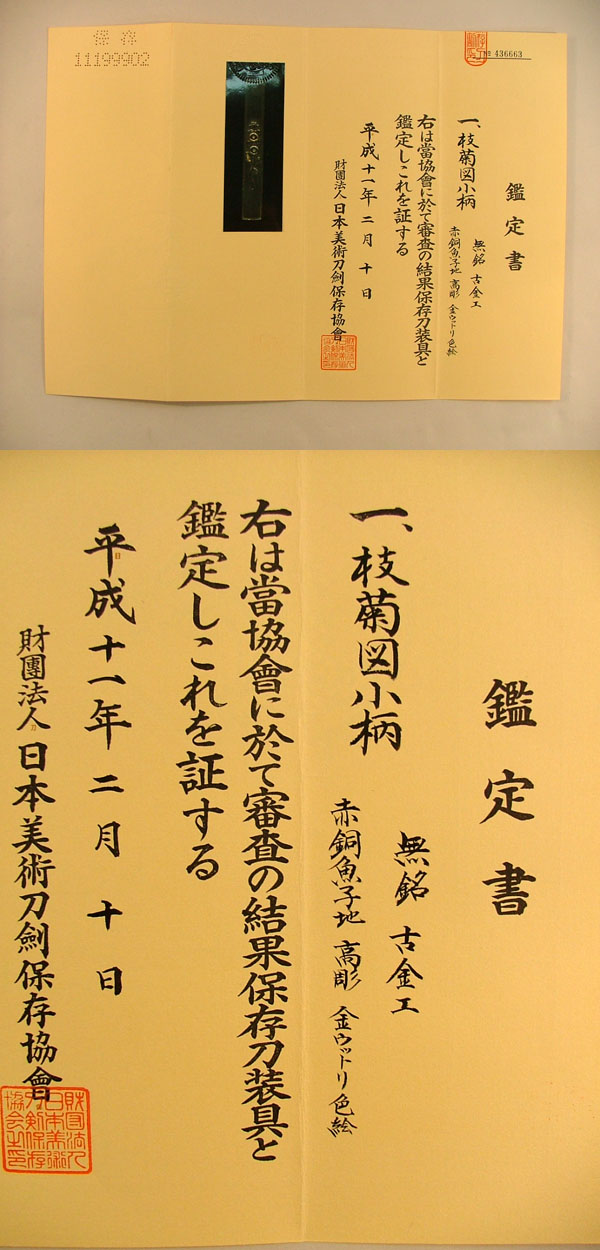 保存
11199902
№ 436663
鑑定書
一、枝菊図小柄
無銘 古金工
赤銅魚子地 高彫 金ウットリ色絵
右は當協會に於て審査の結果保存刀装具と
鑑定しこれを証する
平成十一年 二月 十日
財團法人 日本美術刀劍保存協會
鑑定書
一、枝菊図小柄
無銘 古金工
赤銅魚子地 高彫 金ウットリ色絵
右は當協會に於て審査の結果保存刀装具と
鑑定しこれを証する
平成十一年 二月 十日
財團法人 日本美術刀劍保存協會
財団法人
日本美術
刀剣保存
協会之印